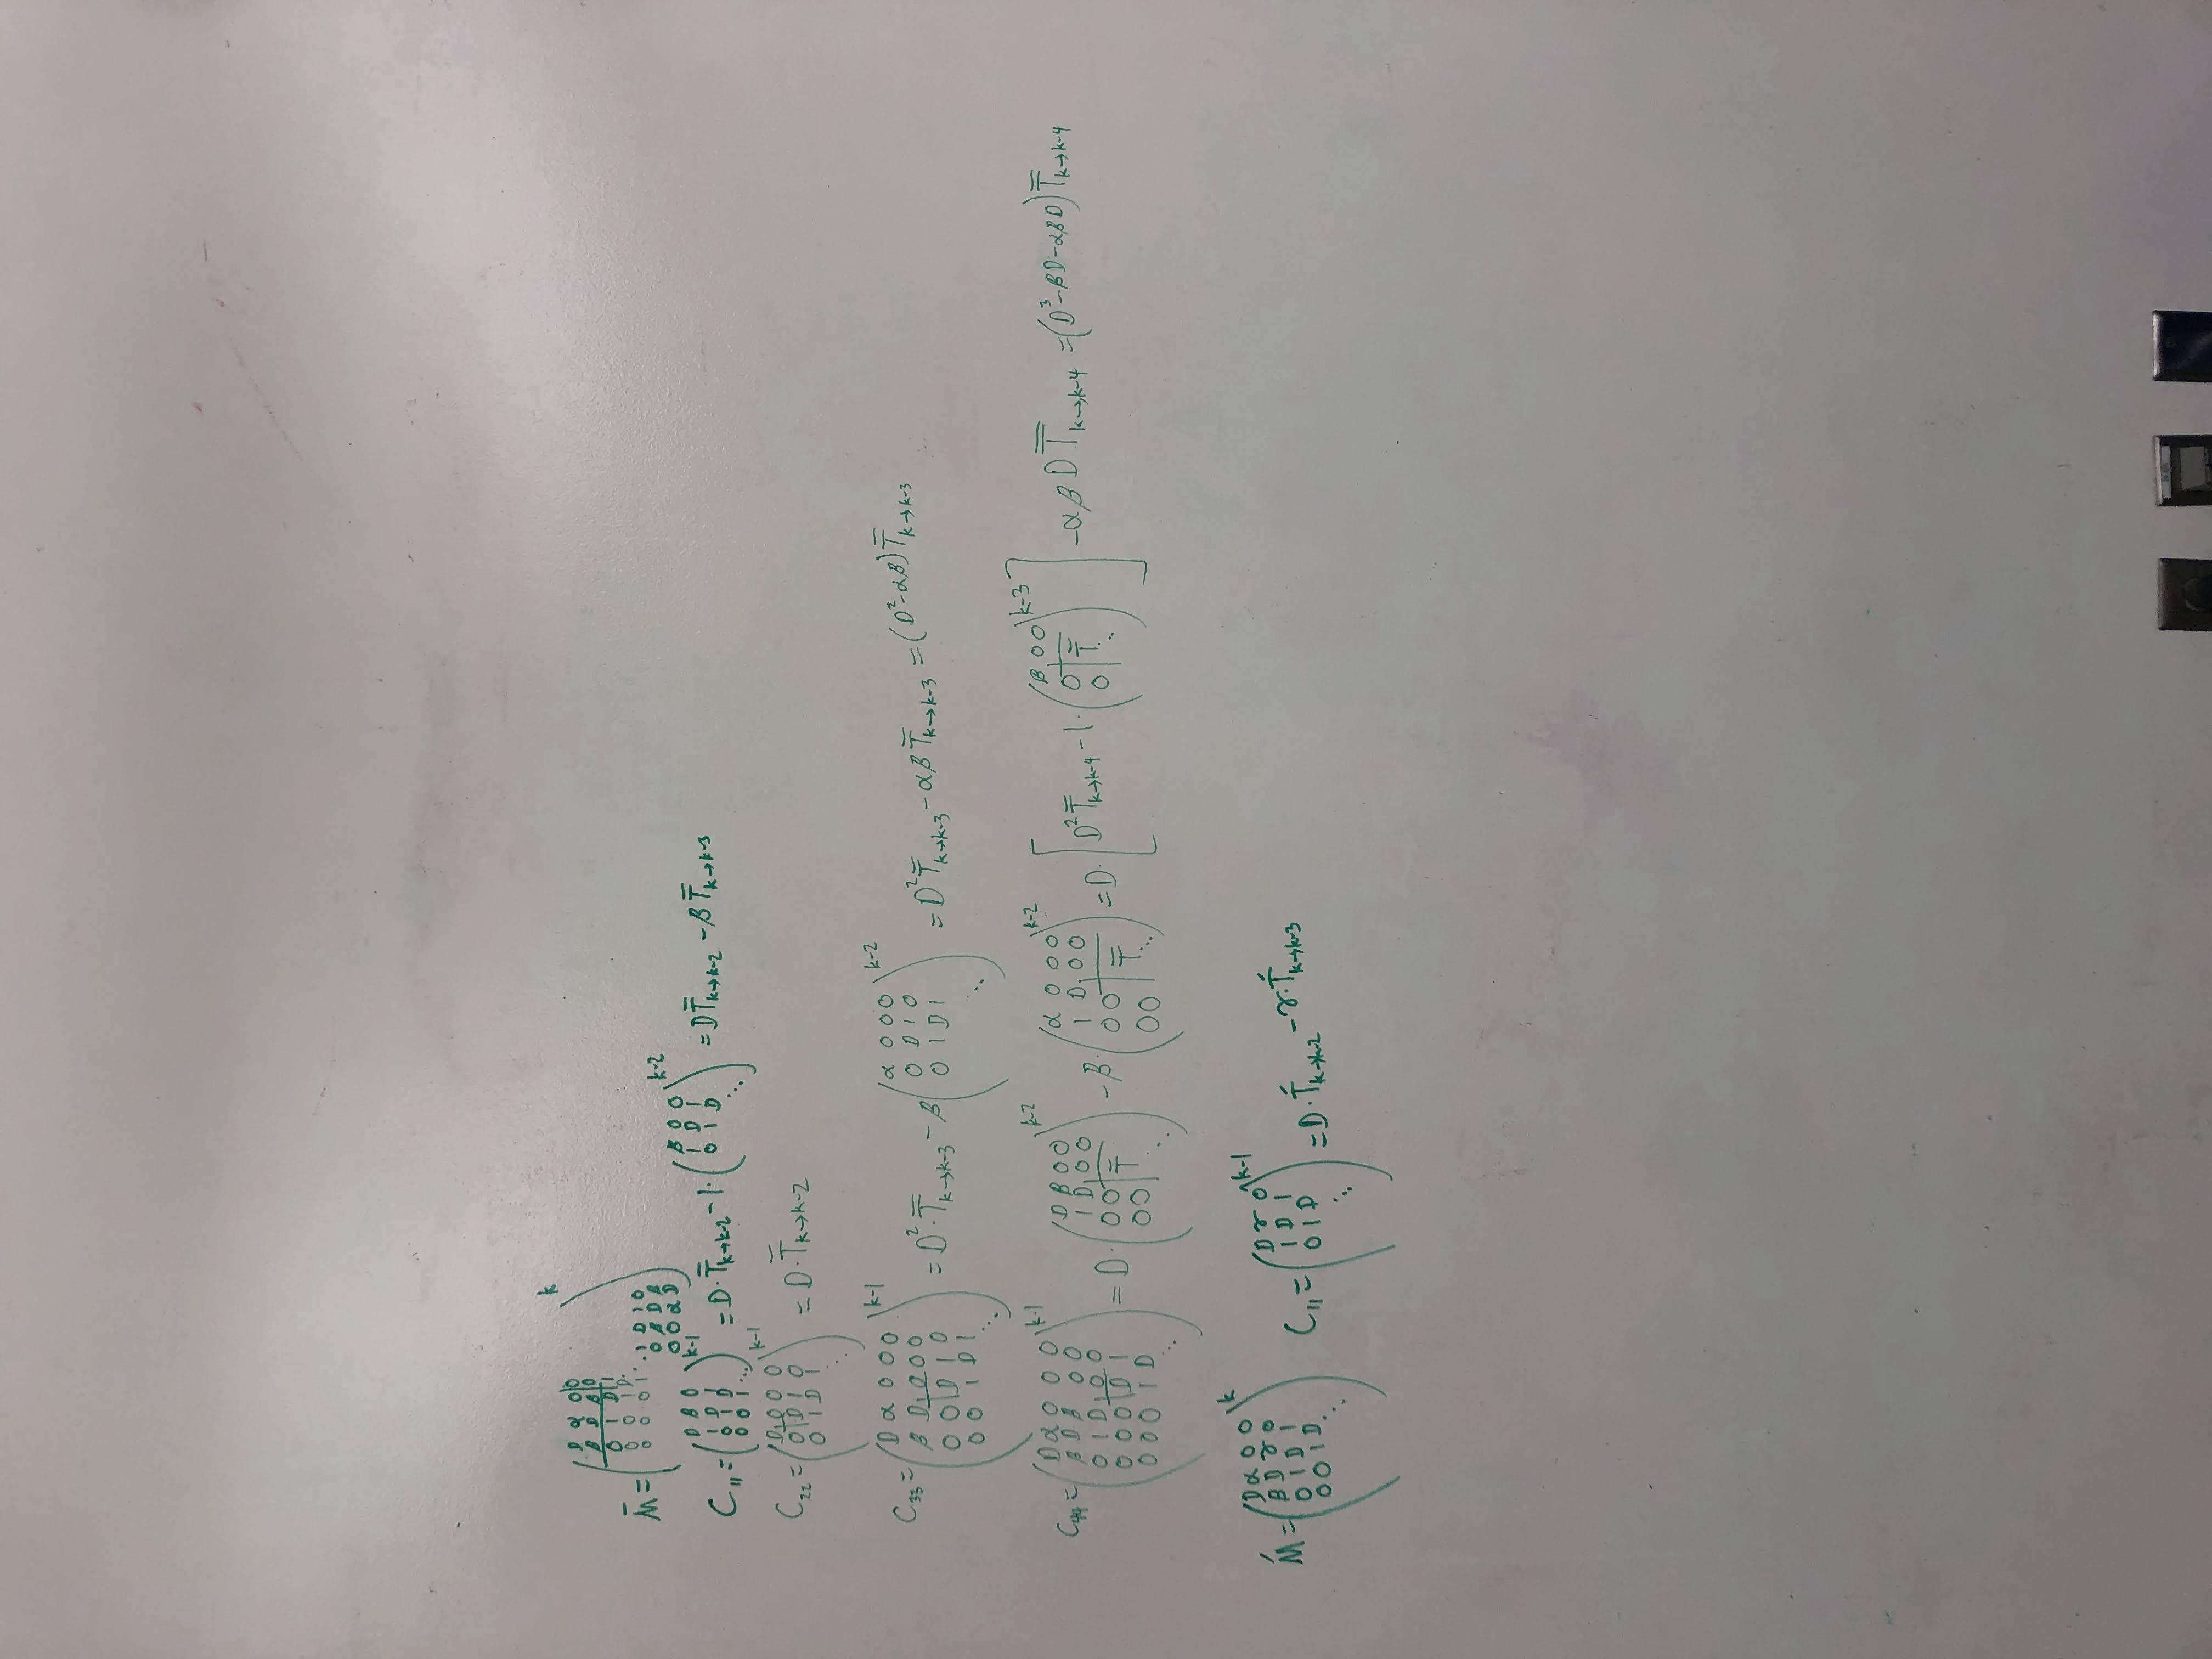 M̄ = ( D α 0 0 ; β D β 0 ; 0 1 D 1 ; 0 0 1 D ⋱ ; 0 0 0 1 ⋱ 1 D 1 0 ; 0 β D β ; 0 0 α D )^k
C₁₁ = ( D β 0 ; 1 D 1 ; 0 1 D ; 0 0 1 ⋱ )^{k-1} = D·T̿_{k→k-2} - 1·( β 0 0 ; 1 D 1 ; 0 1 D ⋱ )^{k-2} = D T̿_{k→k-2} - β T̿_{k→k-3}
C₂₂ = ( D 0 0 0 ; 0 D 1 0 ; 0 1 D 1 ⋱ )^{k-1} = D·T̿_{k→k-2}
C₃₃ = ( D α 0 0 0 ; β D 0 0 0 ; 0 0 D 1 0 ; 0 0 1 D 1 ⋱ )^{k-1} = D²·T̿_{k→k-3} - β ( α 0 0 0 ; 0 D 1 0 ; 0 1 D 1 ⋱ )^{k-2} = D² T̿_{k→k-3} - αβ T̿_{k→k-3} = (D² - αβ) T̿_{k→k-3}
C₄₄ = ( D α 0 0 0 ; β D β 0 0 ; 0 1 D 0 0 ; 0 0 0 D 1 ; 0 0 0 1 D ⋱ )^{k-1} = D·( D β 0 0 ; 1 D 0 0 ; 0 0 T̿ ; 0 0 ⋱ )^{k-2} - β·( α 0 0 0 ; 1 D 0 0 ; 0 0 T̿ ; 0 0 ⋱ )^{k-2} = D·[ D² T̿_{k→k-4} - 1·( β 0 0 ; 0 T̿ ; 0 ⋱ )^{k-3} ] - αβ D T̿_{k→k-4} = (D³ - βD - αβD) T̿_{k→k-4}
Ḿ = ( D α 0 0 ; β D γ 0 ; 0 1 D 1 ; 0 0 1 D ⋱ )^k C₁₁ = ( D γ 0 ; 1 D 1 ; 0 1 D ⋱ )^{k-1} = D·T́_{k→k-2} - γ·T́_{k→k-3}